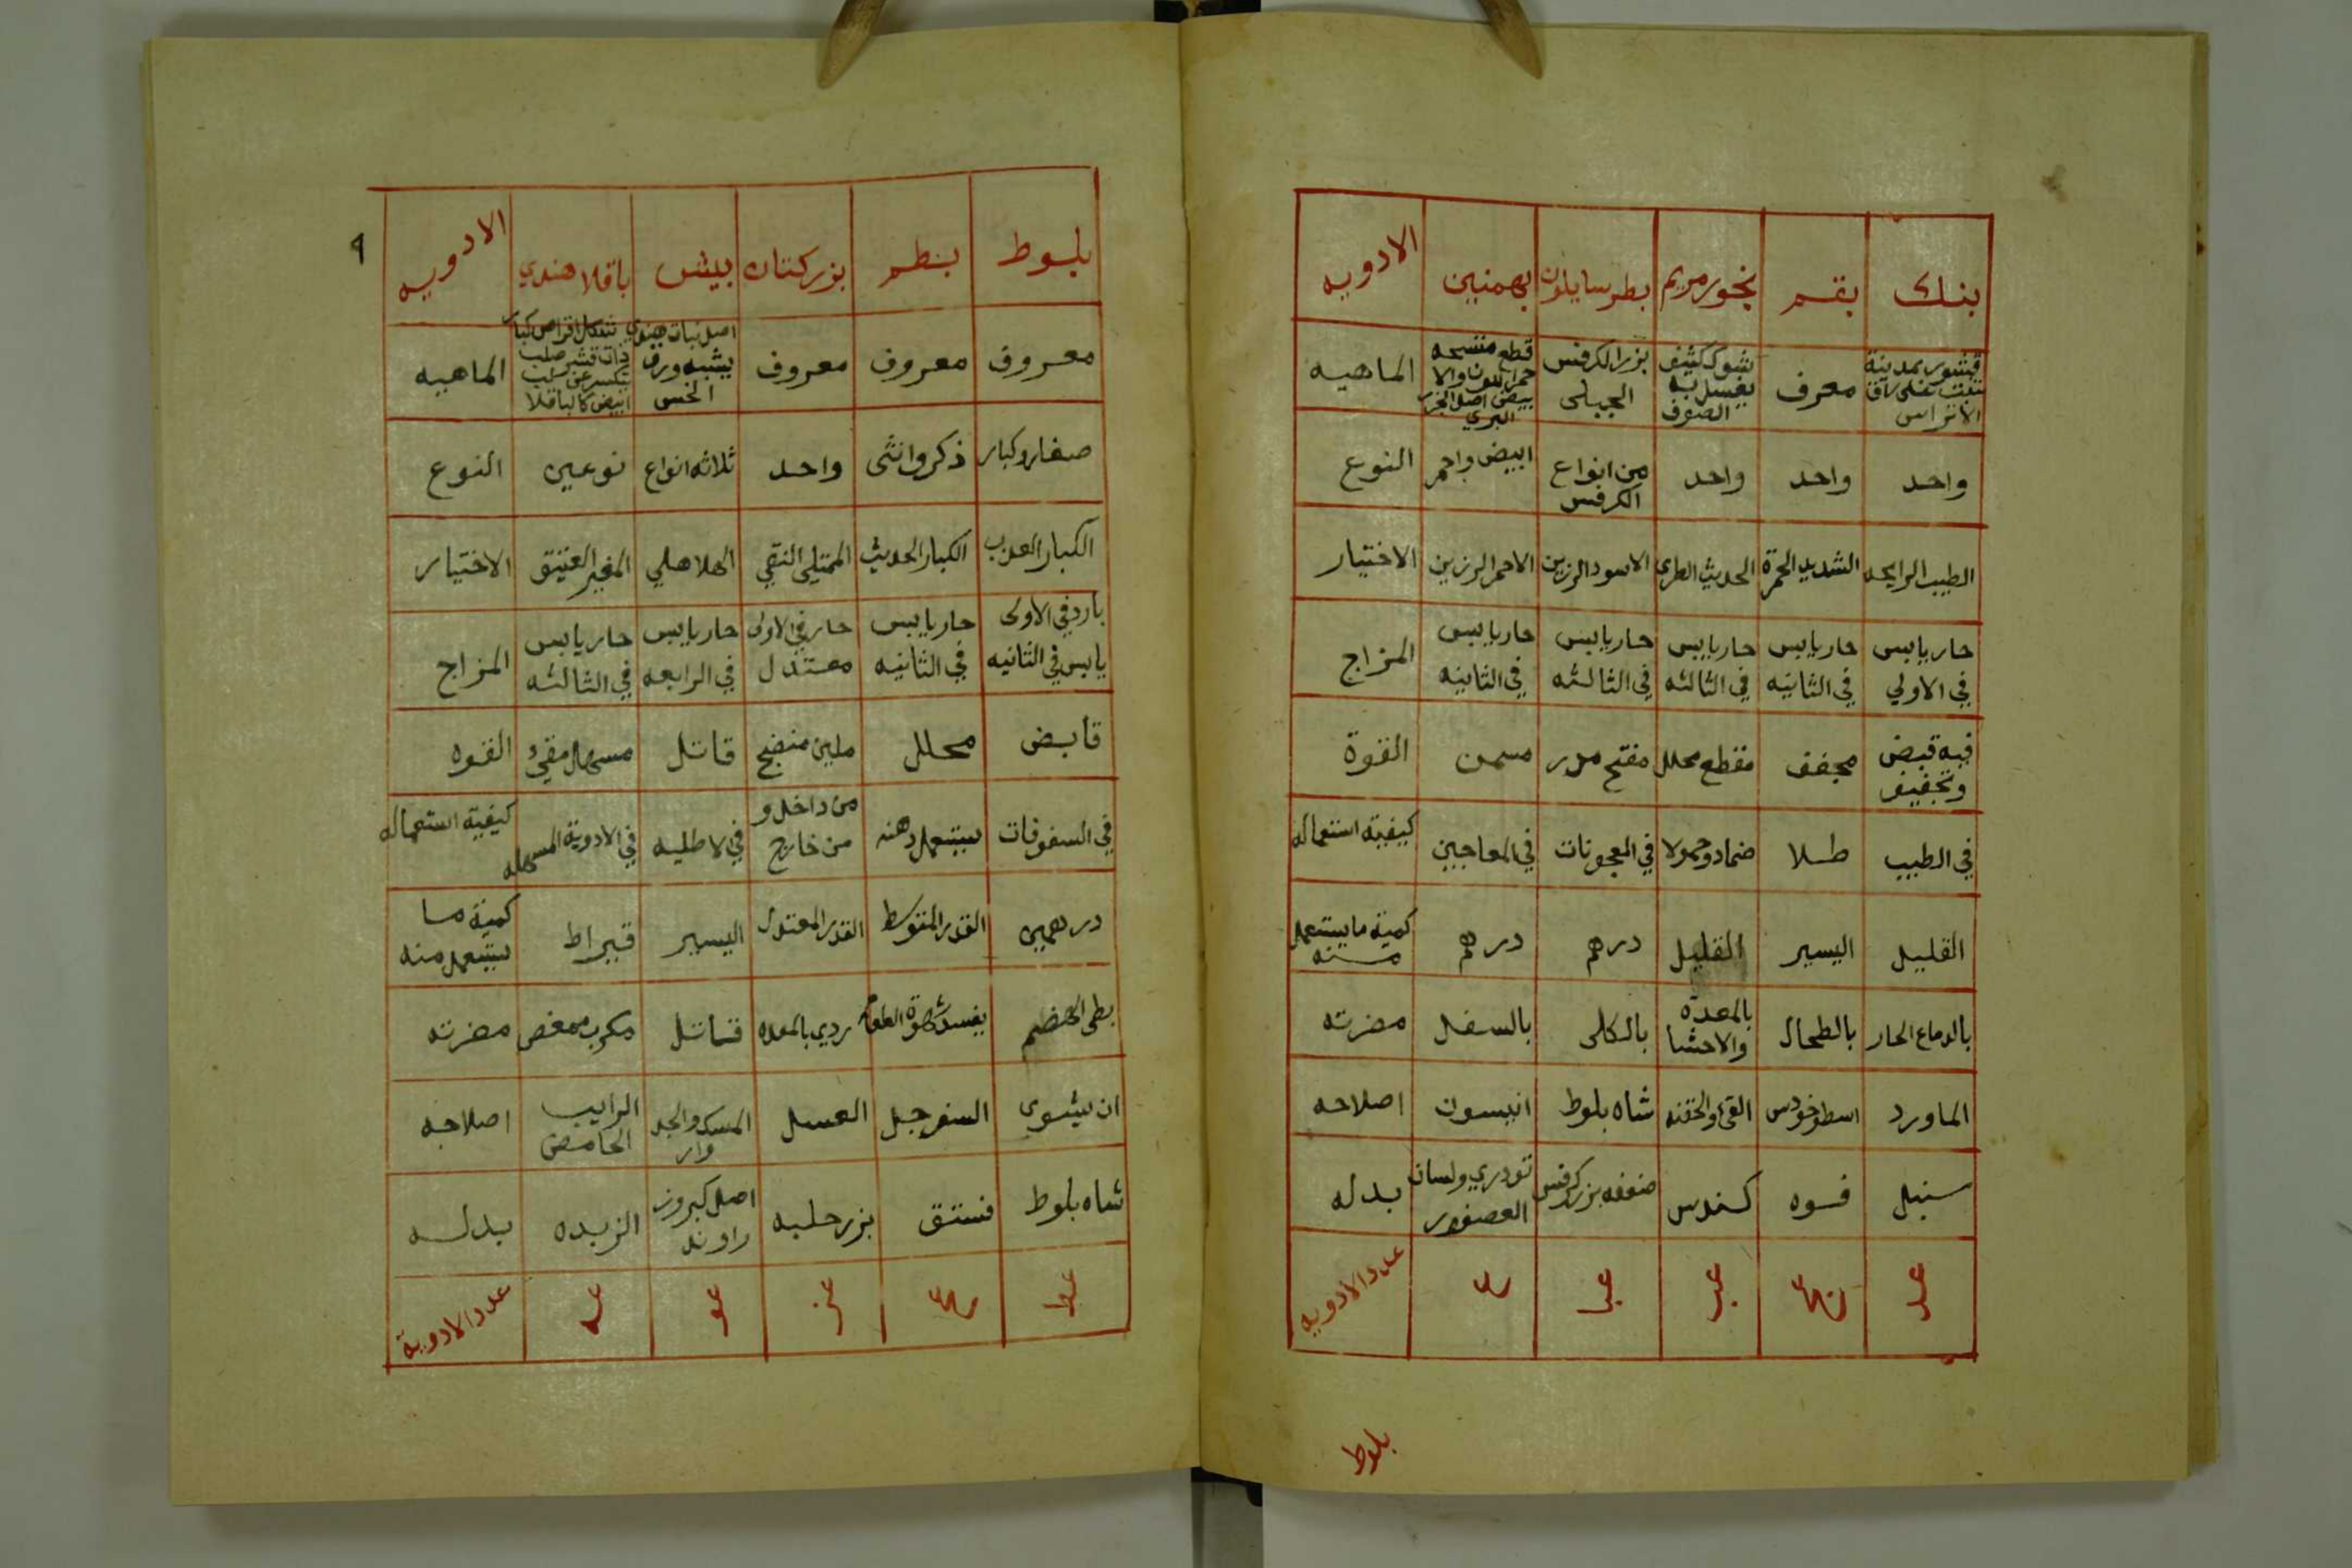 بنك بقم بخور مريم بطرساليون بهمنين الادويه
قشور بمدينة تنبت على ساق الاتراس معرف شوك كثيف يغسل به الصوف بزر الكرفس الجبلى قطع متشبحه حمر اللون والابيض اصل الجزر البري الماهيه
واحد واحد واحد من انواع الكرفس ابيض واحمر النوع
الطيب الرايحه الشديد الحمرة الحديث الطري الاسود الرزين الاحمر الرزين الاختيار
حار يابس في الاولي حار يابس في الثانيه حار يابس في الثالثه حار يابس في الثالثه حار يابس في الثانيه المزاج
فيه قبض وتجفيف مجفف مقطع محلل مفتح مدر مسمن القوة
في الطيب طلا ضماد وحمولا في المعجونات في المعاجين كيفية استعماله
القليل اليسير القليل درهم درهم كمية ما يستعمل منه
بالدماع الحار بالطحال بالمعده والاحشا بالكلى بالسفل مضرته
الماورد اسطوخودس القئ والحقنه شاه بلوط انيسون اصلاحه
سنبل فسوه كندس ضعفه بزر كرفس تودري ولسان العصفور بدله
عدد الادويه
بلوط
٩
بلوط بطم بزر كتان بيش باقلا هندي الادويه
معروف معروف معروف اصل نبات هندي يشبه ورق الخس شكل اقراص كبار ذات قشر صلب تتكسر عن لب ابيض كالباقلا الماهيه
صغار وكبار ذكر وانثى واحد ثلاثه انواع نوعين النوع
الكبار العذب الكبار الحديث الممتلى النقي الهلاهلي المغبر العتيق الاختيار
بارد في الاولى يابس في الثانيه حار يابس في الثانيه حار في الاولى معتدل حار يابس في الرابعه حار يابس في الثالثه المزاج
قابض محلل ملين منضج قاتل مسهل مقيئ القوه
في السفوفات يستعمل دهنه من داخل و من خارج في الاطليه في الادوية المسهله كيفية استعماله
درهمين القدر المتوسط القدر المعتدل اليسير قيراط كمية ما يستعمل منه
بطى الهضم يفسد شهوة الطعام ردي بالمعده قتاتل مكرب ممغص مضرته
ان يشوى السفرجل العسل المسك والجدوار الرايب الحامض اصلاحه
شاه بلوط فستق بزر حلبه اصل كبر وزراوند الزبده بدله
عدد الادوية